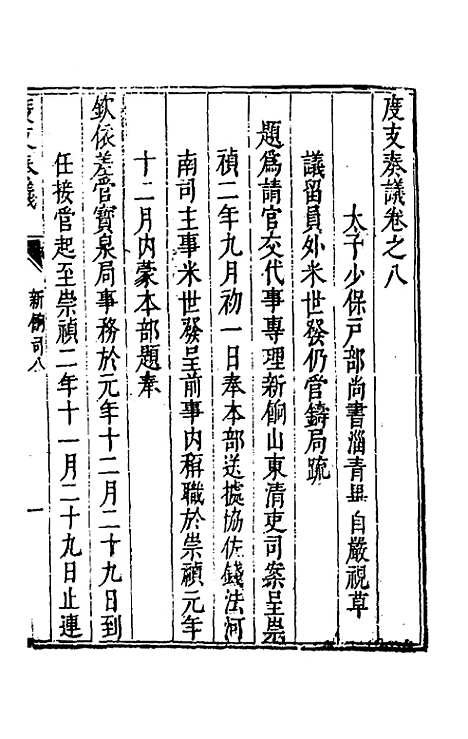 度支奏議卷之八
太子少保戶部尚書淄青畢自嚴視草
議留員外米世發仍管鑄局疏
題為請官交代事專理新餉山東清吏司案呈崇
禎二年九月初一日奉本部送據協佐錢法河
南司主事米世發呈前事內稱職於崇禎元年
十二月內蒙本部題奉
欽依差管寶泉局事務於元年十二月二十九日到
任接管起至崇禎二年十一月二十九日止連
度支奏議
新餉司八
一